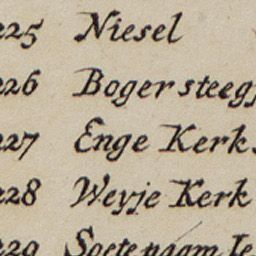 225 Niesel
226 Boger steeg
227 Enge Kerk
228 Weyje Kerk
229 Soete naam Ie